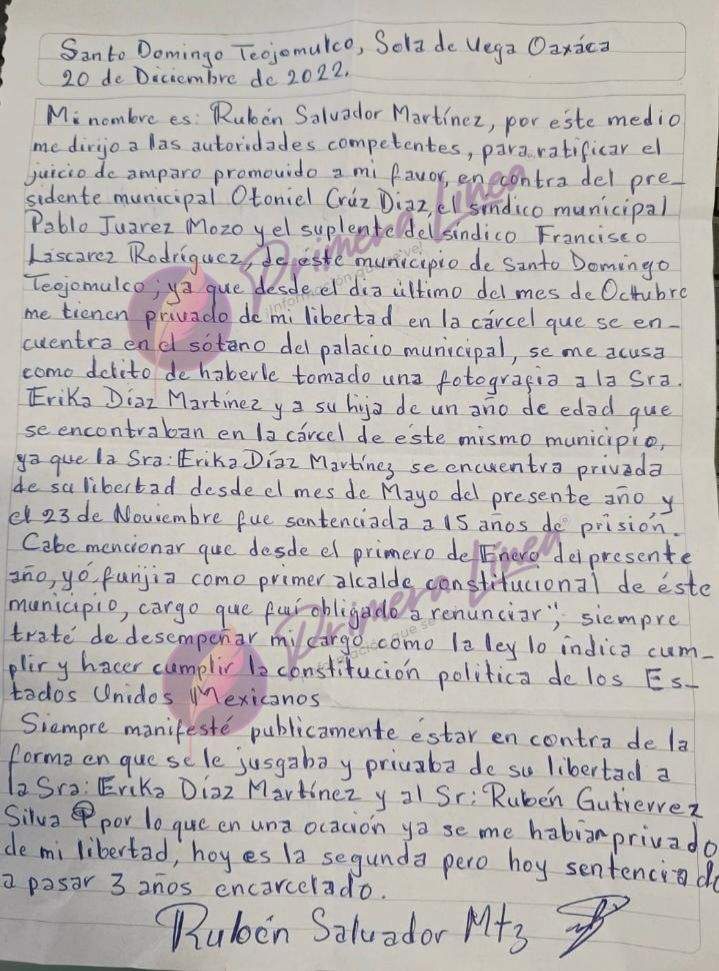 Santo Domingo Teojomulco, Sola de Vega Oaxáca
20 de Diciembre de 2022.
Mi nombre es: Rubén Salvador Martínez, por éste medio
me dirijo a las autoridades competentes, para ratificar el
juicio de amparo promovido a mi favor, en contra del pre-
sidente municipal Otoniel Crúz Díaz, el síndico municipal
Pablo Juarez Mozo y el suplente del síndico Francisco
Láscarez Rodríguez, de éste municipio de Santo Domingo
Teojomulco; ya que desde el día último del mes de Octubre
me tienen privado de mi libertad en la cárcel que se en-
cuentra en el sótano del palacio municipal, se me acusa
como delito de haberle tomado una fotografia a la Sra.
Erika Díaz Martínez y a su hija de un año de edad que
se encontraban en la cárcel de éste mismo municipio,
ya que la Sra: Erika Díaz Martínez se encuentra privada
de su libertad desde el mes de Mayo del presente año y
el 23 de Noviembre fue sentenciada a 15 años de prisión.
Cabe mencionar que desde el primero de Enero del presente
año, yó funjía como primer alcalde constitucional de éste
municipio, cargo que fuí obligado a renunciar", siempre
traté de desempeñar mi cargo como la ley lo indica cum-
plir y hacer cumplir la constitución política de los Es-
tados Unidos Mexicanos
Siempre manifesté publicamente éstar en contra de la
forma en que se le jusgaba y privaba de su libertad a
la Sra: Erika Díaz Martínez y al Sr: Rubén Gutierrez
Silva por lo que en una ocación ya se me habían privado
de mi libertad, hoy es la segunda pero hoy sentenciado
a pasar 3 años encarcelado.
Rubén Salvador Mtz
Primera Línea
Primera Línea